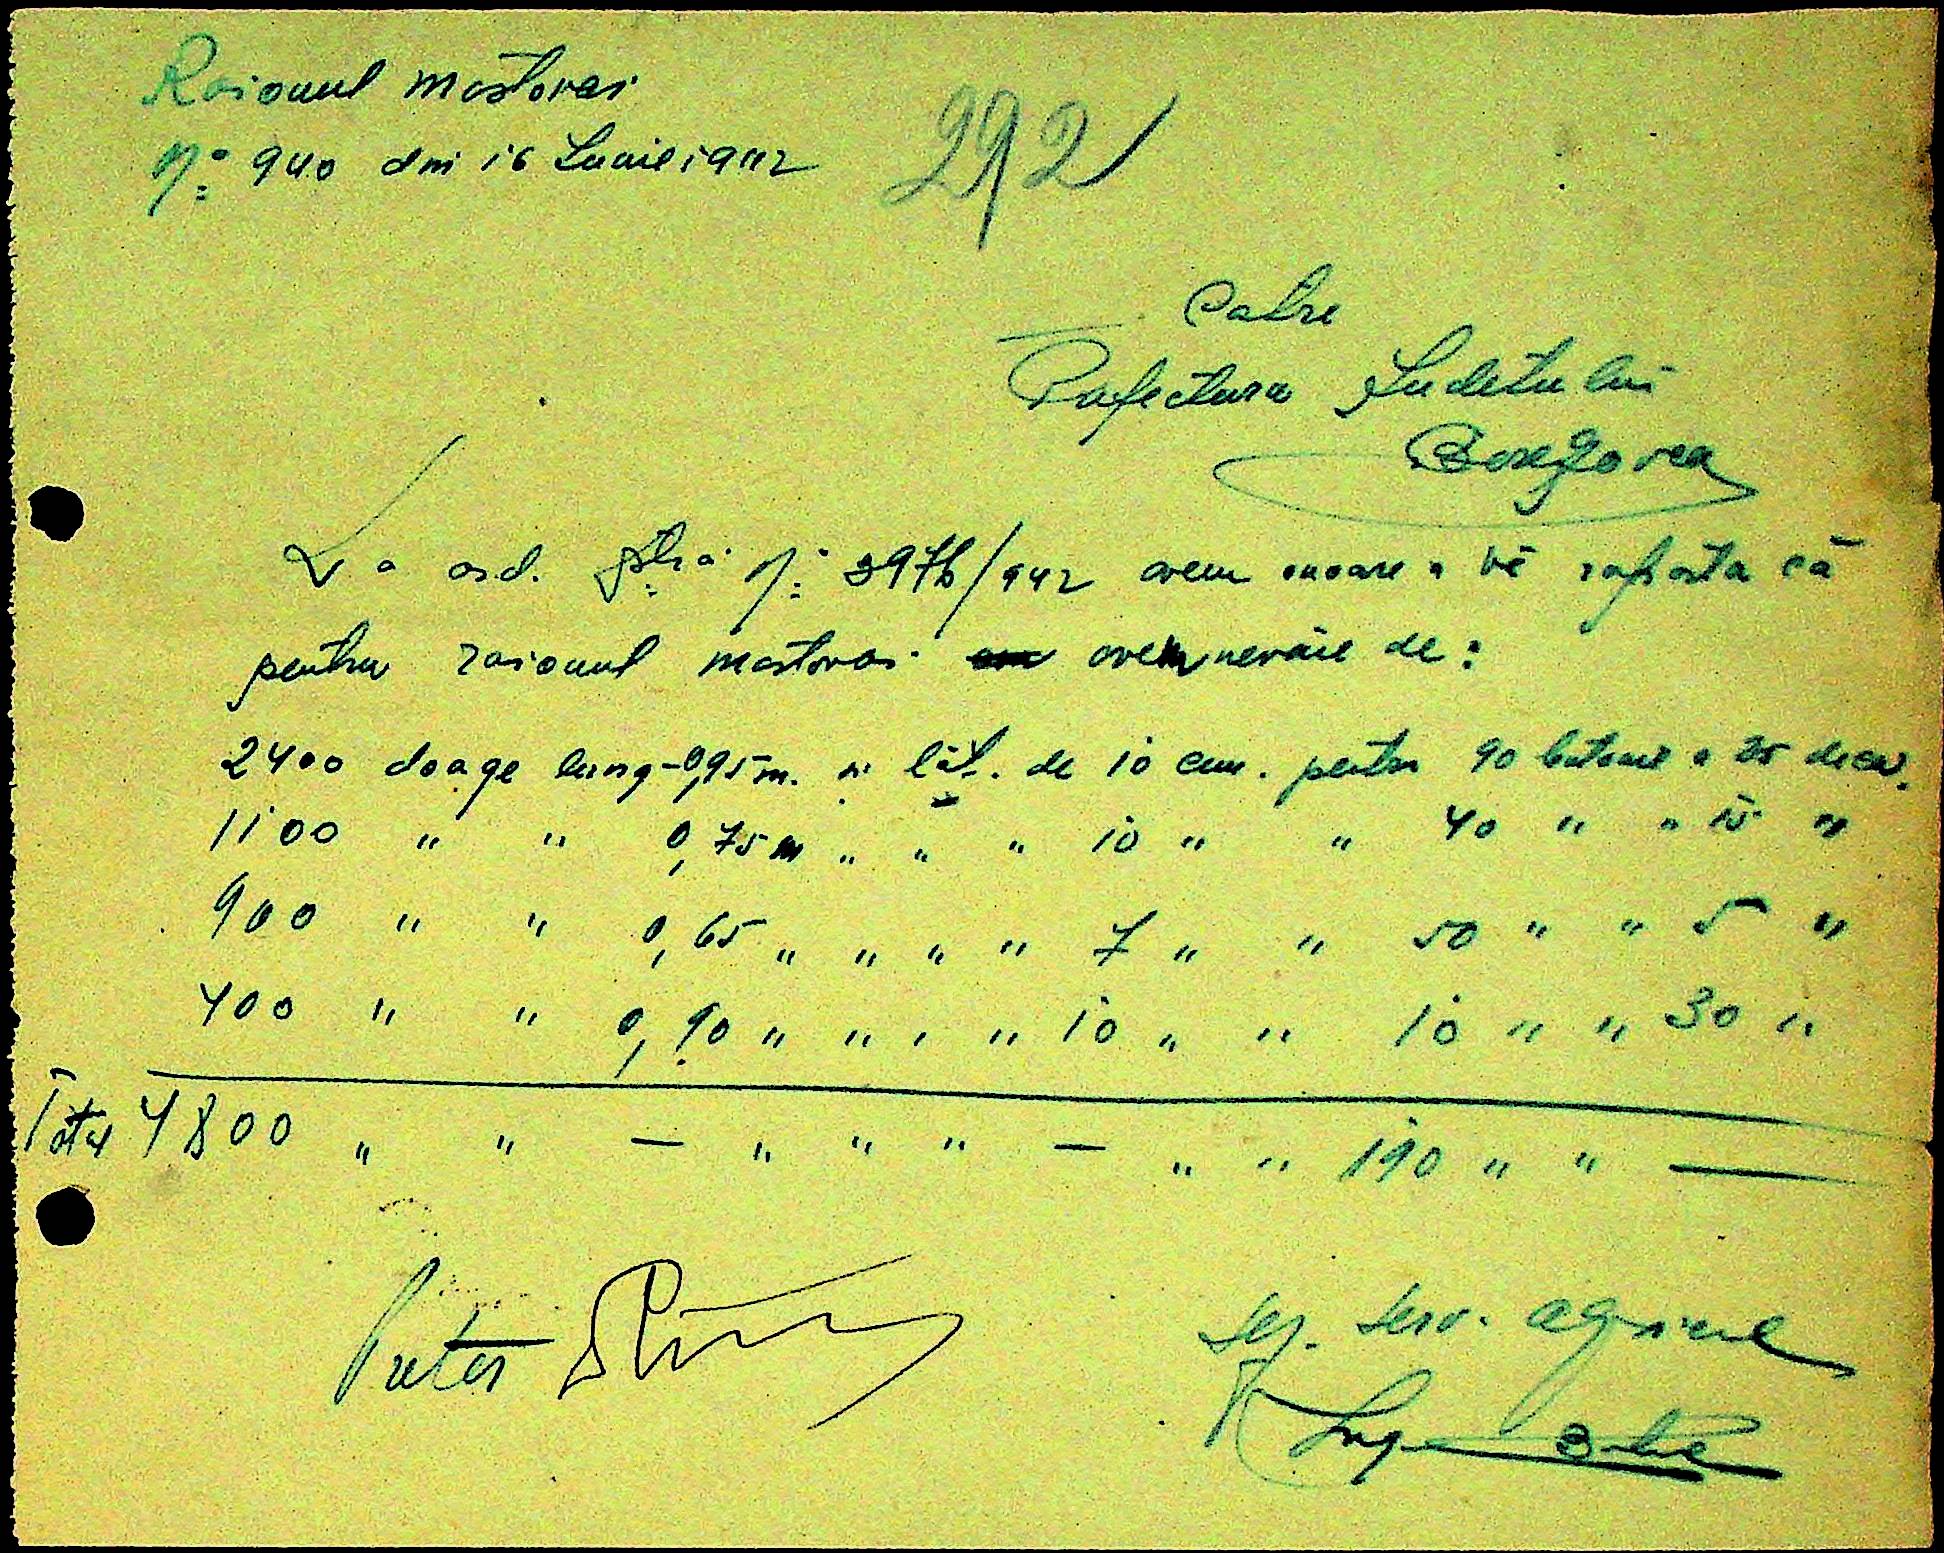 Raionul Mostovoi
Nº 940 din 16 Iunie 1942
292
Catre
Prefectura Judetului
Berezovca
La ord. Dtră Nº 3976/942 avem onoare a vē raporta că
pentru raionul Mostovoi avem nevoie de:
2400 doage lung-0,95 m. și lăț. de 10 cm. pentru 90 butoaie a 25 decal.
1100 " " 0,75 m " " " 10 " " 40 " " 15 "
900 " " 0,65 " " " " 7 " " 50 " " 5 "
400 " " 0,90 " " " " 10 " " 10 " " 30 "
Total 4800 " " — " " " — " " 190 " " —
Pretor
Șef. Serv. Agricol
Ing.